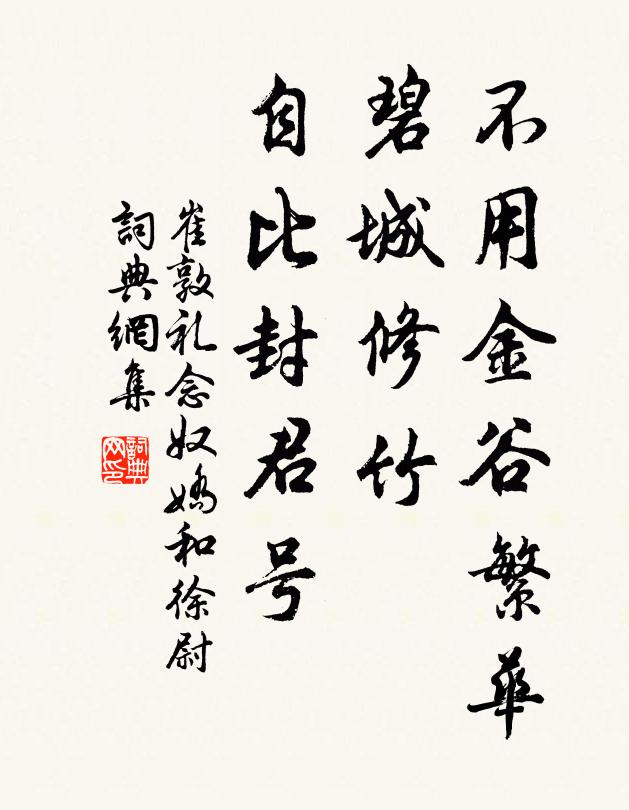 不用金谷繁華
碧城修竹
自比封君号
崔敦礼念奴嬌和徐尉
詞典網集
詞典
网印